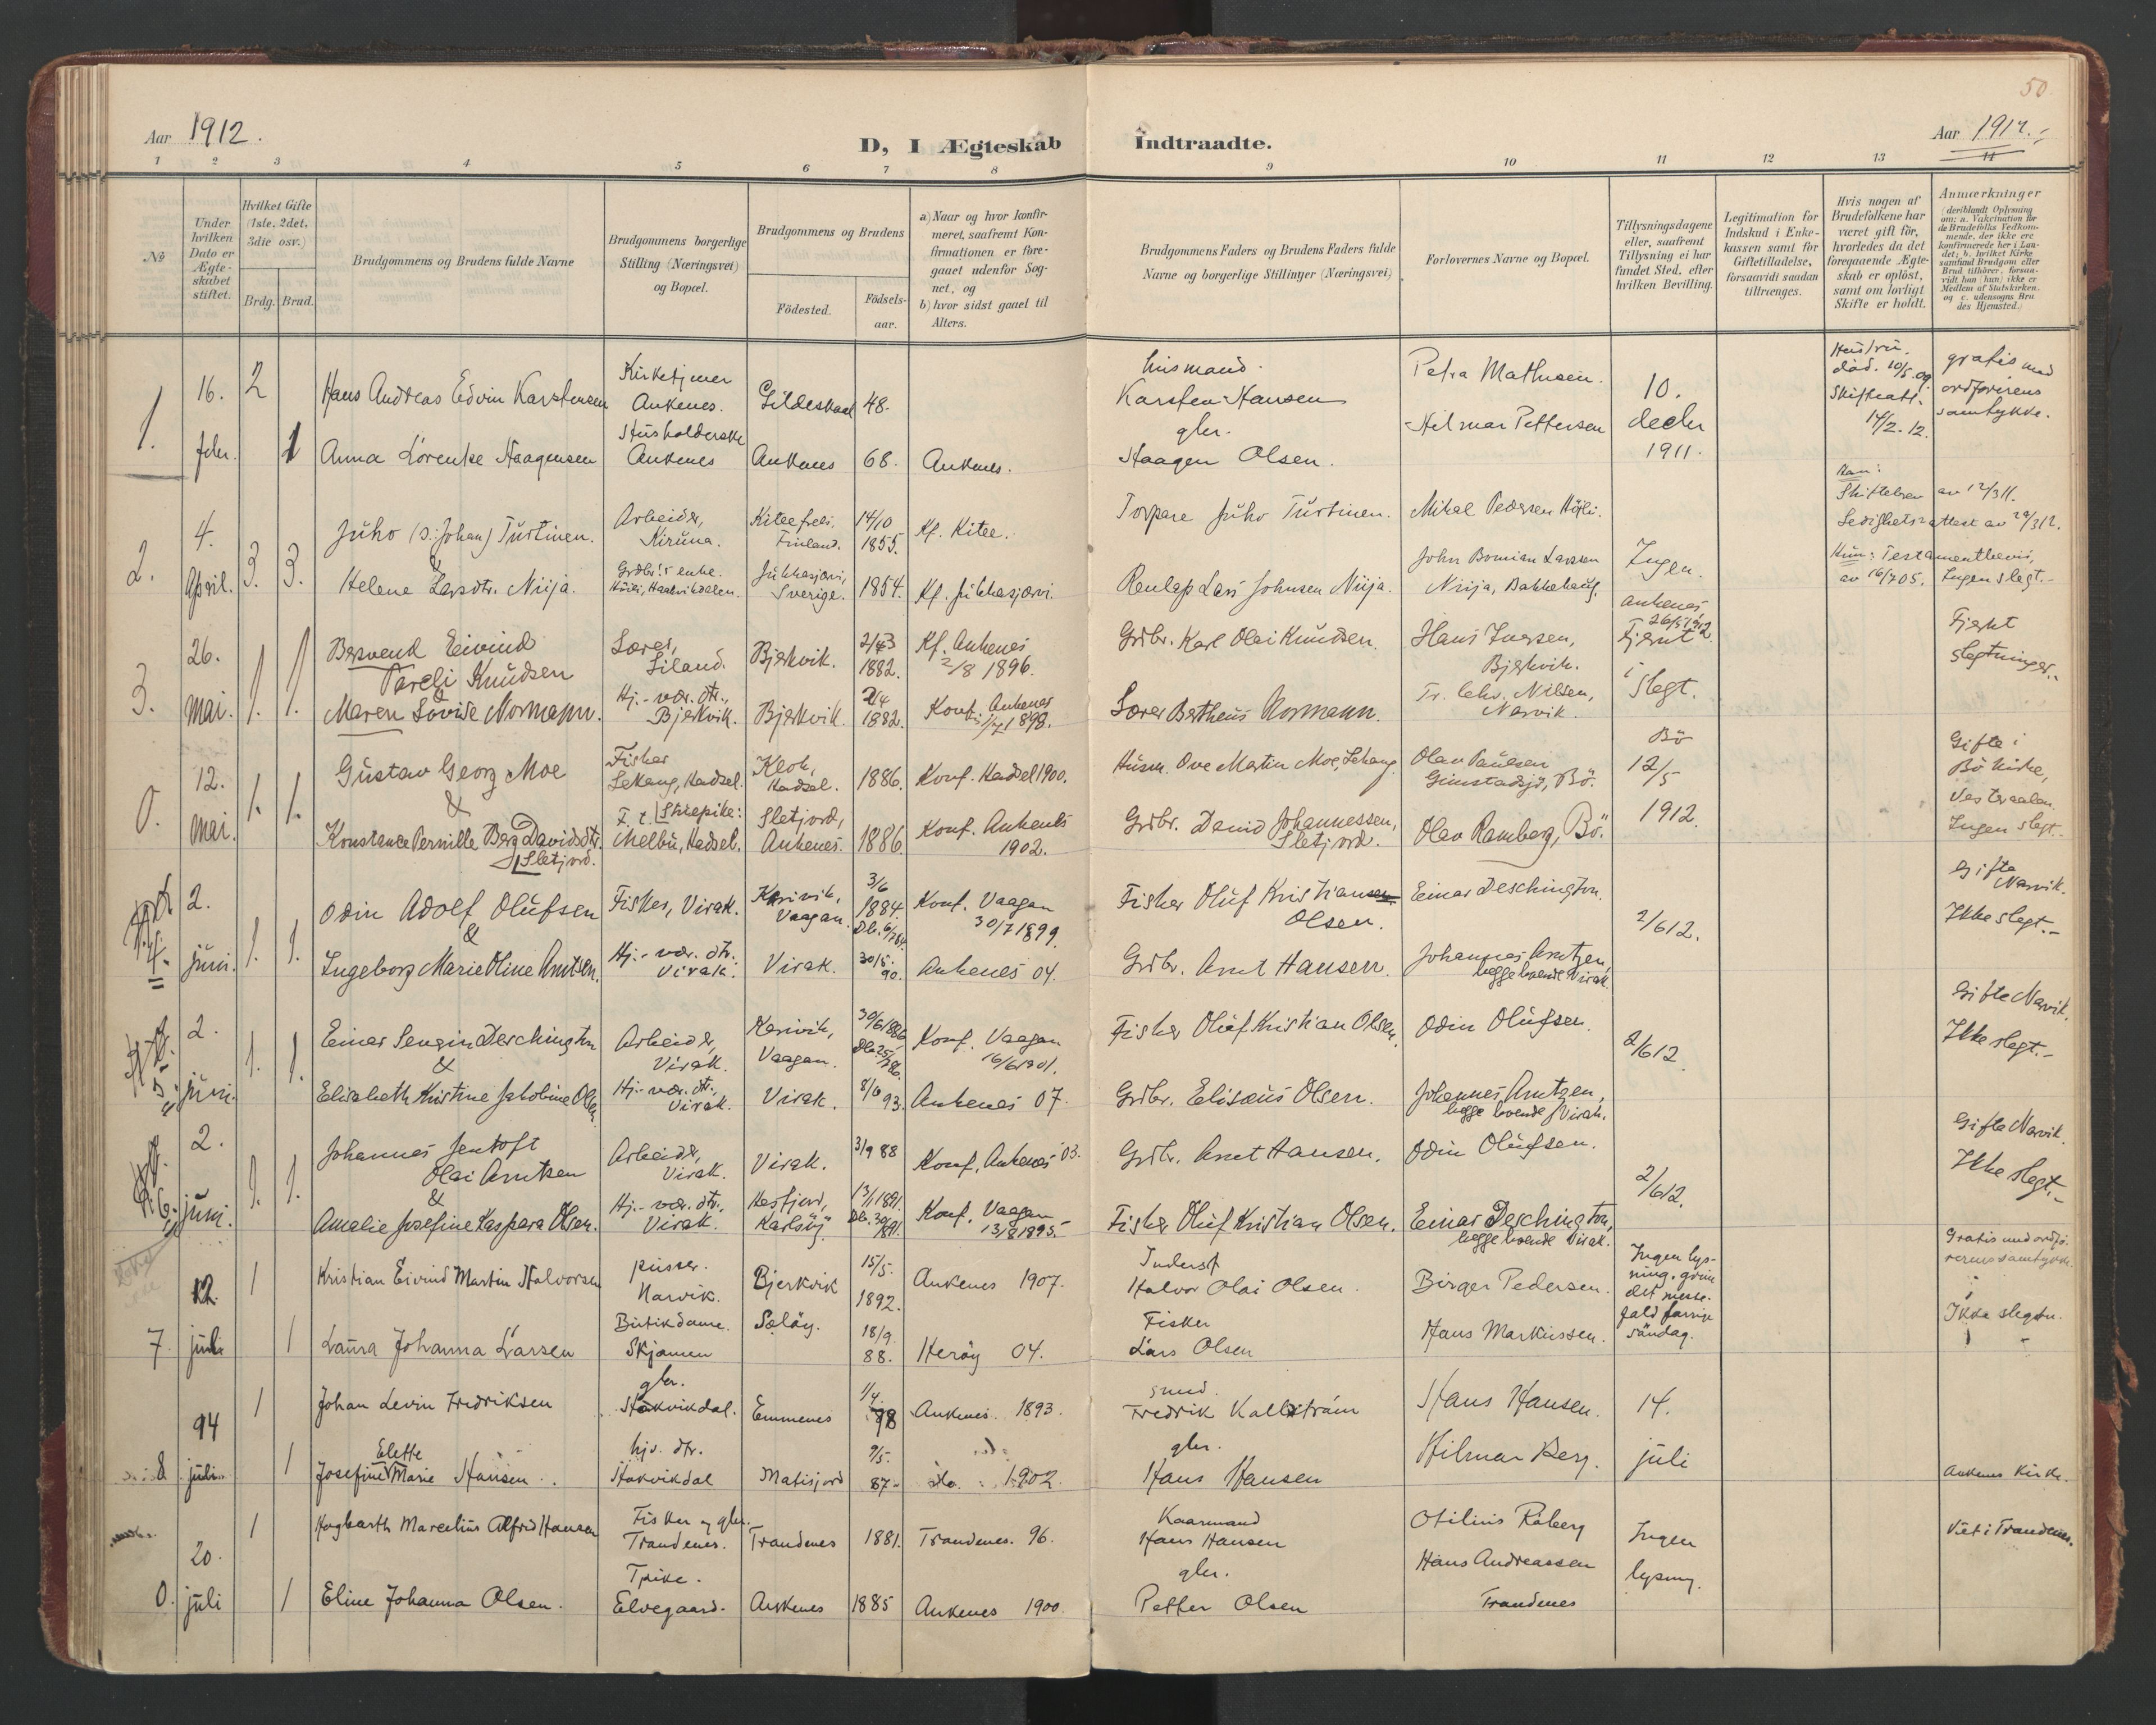 50
Aar 1912.
D, I Ægteskab Indtraadte.
Aar 1912.
1 2 3 4 5 6 7 8 9 10 11 12 13 14
№
Under hvilken Dato er Ægteskabet stiftet.
Hvilket Gifte (1ste, 2det, 3die osv.)
Brdg. Brud.
Brudgommens og Brudens fulde Navne
Brudgommens borgerlige Stilling (Næringsvei) og Bopæl.
Brudgommens og Brudens
Födested.
Födsels-aar.
a) Naar og hvor konfirmeret, saafremt Konfirmationen er foregaaet udenfor Sognet, og
b) hvor sidst gaaet til Alters.
Brudgommens Faders og Brudens Faders fulde Navne og borgerlige Stillinger (Næringsvei)
Forlovernes Navne og Bopæl.
Tillysningsdagene eller, saafremt Tillysning ei har fundet Sted, efter hvilken Bevilling.
Legitimation for Indskud i Enkekassen samt for Giftetilladelse, forsaavidt saadan tiltrænges.
Hvis nogen af Brudefolkene har været gift för, hvorledes da det foregaaende Ægteskab er oplöst, samt om lovligt Skifte er holdt.
Anmærkninger (deriblandt Oplysning om: a. Vakcination for de Brudefolks Vedkommende, der ikke ere konfirmerede her i Landet; b. hvilket Kirkesamfund Brudgom eller Brud tilhörer, forsaavidt han (hun) ikke er Medlem af Statskirken. og c. udensogns Brudes Hjemsted.)
1. 16. 2 Hans Andreas Edvin Karstensen Kirketjener Ankenes. Gildeskaal 48. husmand Karsten Hansen Petra Mathisen. 10. Hustru död. 10/5.09. Skifteatt. 14/2.12. gratis med ordförerens samtykke.
febr. 1 Anna Lorentse Haagensen Husholderske Ankenes Ankenes 68. Ankenes. gbr. Haagen Olsen. Hilmar Pettersen decbr 1911.
2. 4. 3. Juho (ɔ: Johan) Turtinen. Arbeider, Kiruna. Kitee Finland. 14/10 1855. Kf. Kitee. Torpare Juho Turtinen. Mikal Pedersen Höili. Han: Skiftebrev av 12/3 11. Ledighetsattest av 29/3 12.
&
April. 3. Helene Larsdtr. Niija. Grdbr's enke. Höili, Haakvikdalen. Jukkasjärvi, Sverige. 1854. Kf. Jukkasjärvi. Renlap Lars Johnsen Niija. John Larsen Niija, Bakkehaug. Ingen. Hun: Testamentbevis av 16/7 05. Ingen slegt.-
3. 26. 1. Bersvend Eivind Pareli Knudsen Lærer, Liland. Bjerkvik. 1882. Kf. Ankenes 2/8 1896. Grdbr. Karl Olai Knudsen. Hans Iversen, Bjerkvik. Ankenes 26/5 1912 Fjernt i slegt. Fjernt slegtninger.
&
mai. 1. Maren Lovise Normann. Hj.-vær. dtr., Bjerkvik. Bjerkvik. 2/4 1882. Konf. Ankenes 1898. Lærer Bertheus Normann. Nilsen, Narvik.
0. 12. 1. Gustav Georg Moe Fisker Lekang, Hadsel. Klok, Hadsel. 1886. Konf. Hadsel 1900. Husm. Ove Martin Moe, Lekang. Olav Paulsen Gimstadsjö, Bö. Bö 12/5 1912. Gifte i Bö kirke, Vesteraalen. Ingen slegt.-
&
mai. 1. Konstance Pernille Berg Davidsdtr. Sletjord. F. t. Strøpike: Melbu, Hadsel. Sletjord, Ankenes. 1886. Konf. Ankenes 1902. Grdbr. David Johannessen, Sletjord. Olav Ramberg, Bö.
4. 2. 1. Odin Adolf Olufsen Fisker, Virak. Vaagan. 3/6 1884. Konf. Vaagan 30/7 1899. Fisker Oluf Kristian Olsen. Einar Deschington. 2/6 12. Gifte Narvik. Ikke slegt.-
&
juni. 1. Ingeborg Marie Oline Arntsen. Hj.-vær. dtr. Virak. Virak. 30/5. 90. Ankenes 04. Grdbr. Arnt Hansen. Johannes Arntzen, begge boende Virak.
5. 2. 1. Einar Deschington Arbeider, Virak. Vaagan. 30/6 1886. Konf. Vaagan 16/6 1901. Fisker Oluf Kristian Olsen. Odin Olufsen. 2/6 12. Gifte Narvik. Ikke slegt.-
&
juni. 1. Elisabeth Kristine Jakobine Olsen Hj.-vær. dtr., Virak. Virak. 8/6 93. Ankenes 07. Grdbr. Elisæus Olsen. Johannes Arntzen, begge boende Virak.
6. 2. 1. Johannes Jentoft Olai Arntsen Arbeider, Virak. Virak. 3/9 88 Konf. Ankenes 03. Grdbr. Arnt Hansen. Odin Olufsen. 2/6 12. Gifte Narvik. Ikke slegt.-
&
juni. 1. Amalie Josefine Kaspara Olsen. Hj.-vær. dtr., Virak. Karlsöj. Konf. Vaagan Fisker Oluf Kristian Olsen. Einar Deschington, begge boende Virak.
7. 12. 1 Kristian Eivind Martin Halvorsen pusser. Narvik. Bjerkvik 15/5. 1892. Ankenes 1907. Inderst Halvor Olai Olsen. Birger Pedersen. Ingen lysning, grundet messefald forrige söndag. Gratis med ordförerens samtykke. Ikke slegtn.
juli 1 Laura Johanna Larsen Butikdame. Skjomen Sæløy. 18/9. 88. Heröy 04. Fisker Lars Olsen Hans Markussen.
8 14 1 Johan Levin Fredriksen gbr. Hakvikdal. Emmenes 78 Ankenes. 1893. smed. Fredrik Kallström Hans Hansen. 14. juli
juli 1 Josefine Elette Marie Hansen hjv. dtr. Hakvikdal Matisjord 9/5. 87- do. 1902. gbr. Hans Hansen Hilmar Berg. Ankenes kirke.
0. 20. 1 Hagbarth Marcelius Alfred Hansen Fisker og gbr. Trandenes. Trandenes 1881. Trandenes. 96. Kaarmand Hans Hansen Otilius Råberg Ingen lysning. Viet i Trandenes.
juli 1 Eline Johanna Olsen. Tpike. Elvegaard. Ankenes 1885 Ankenes 1900. gbr. Petter Olsen Hans Andreassen Trandenes